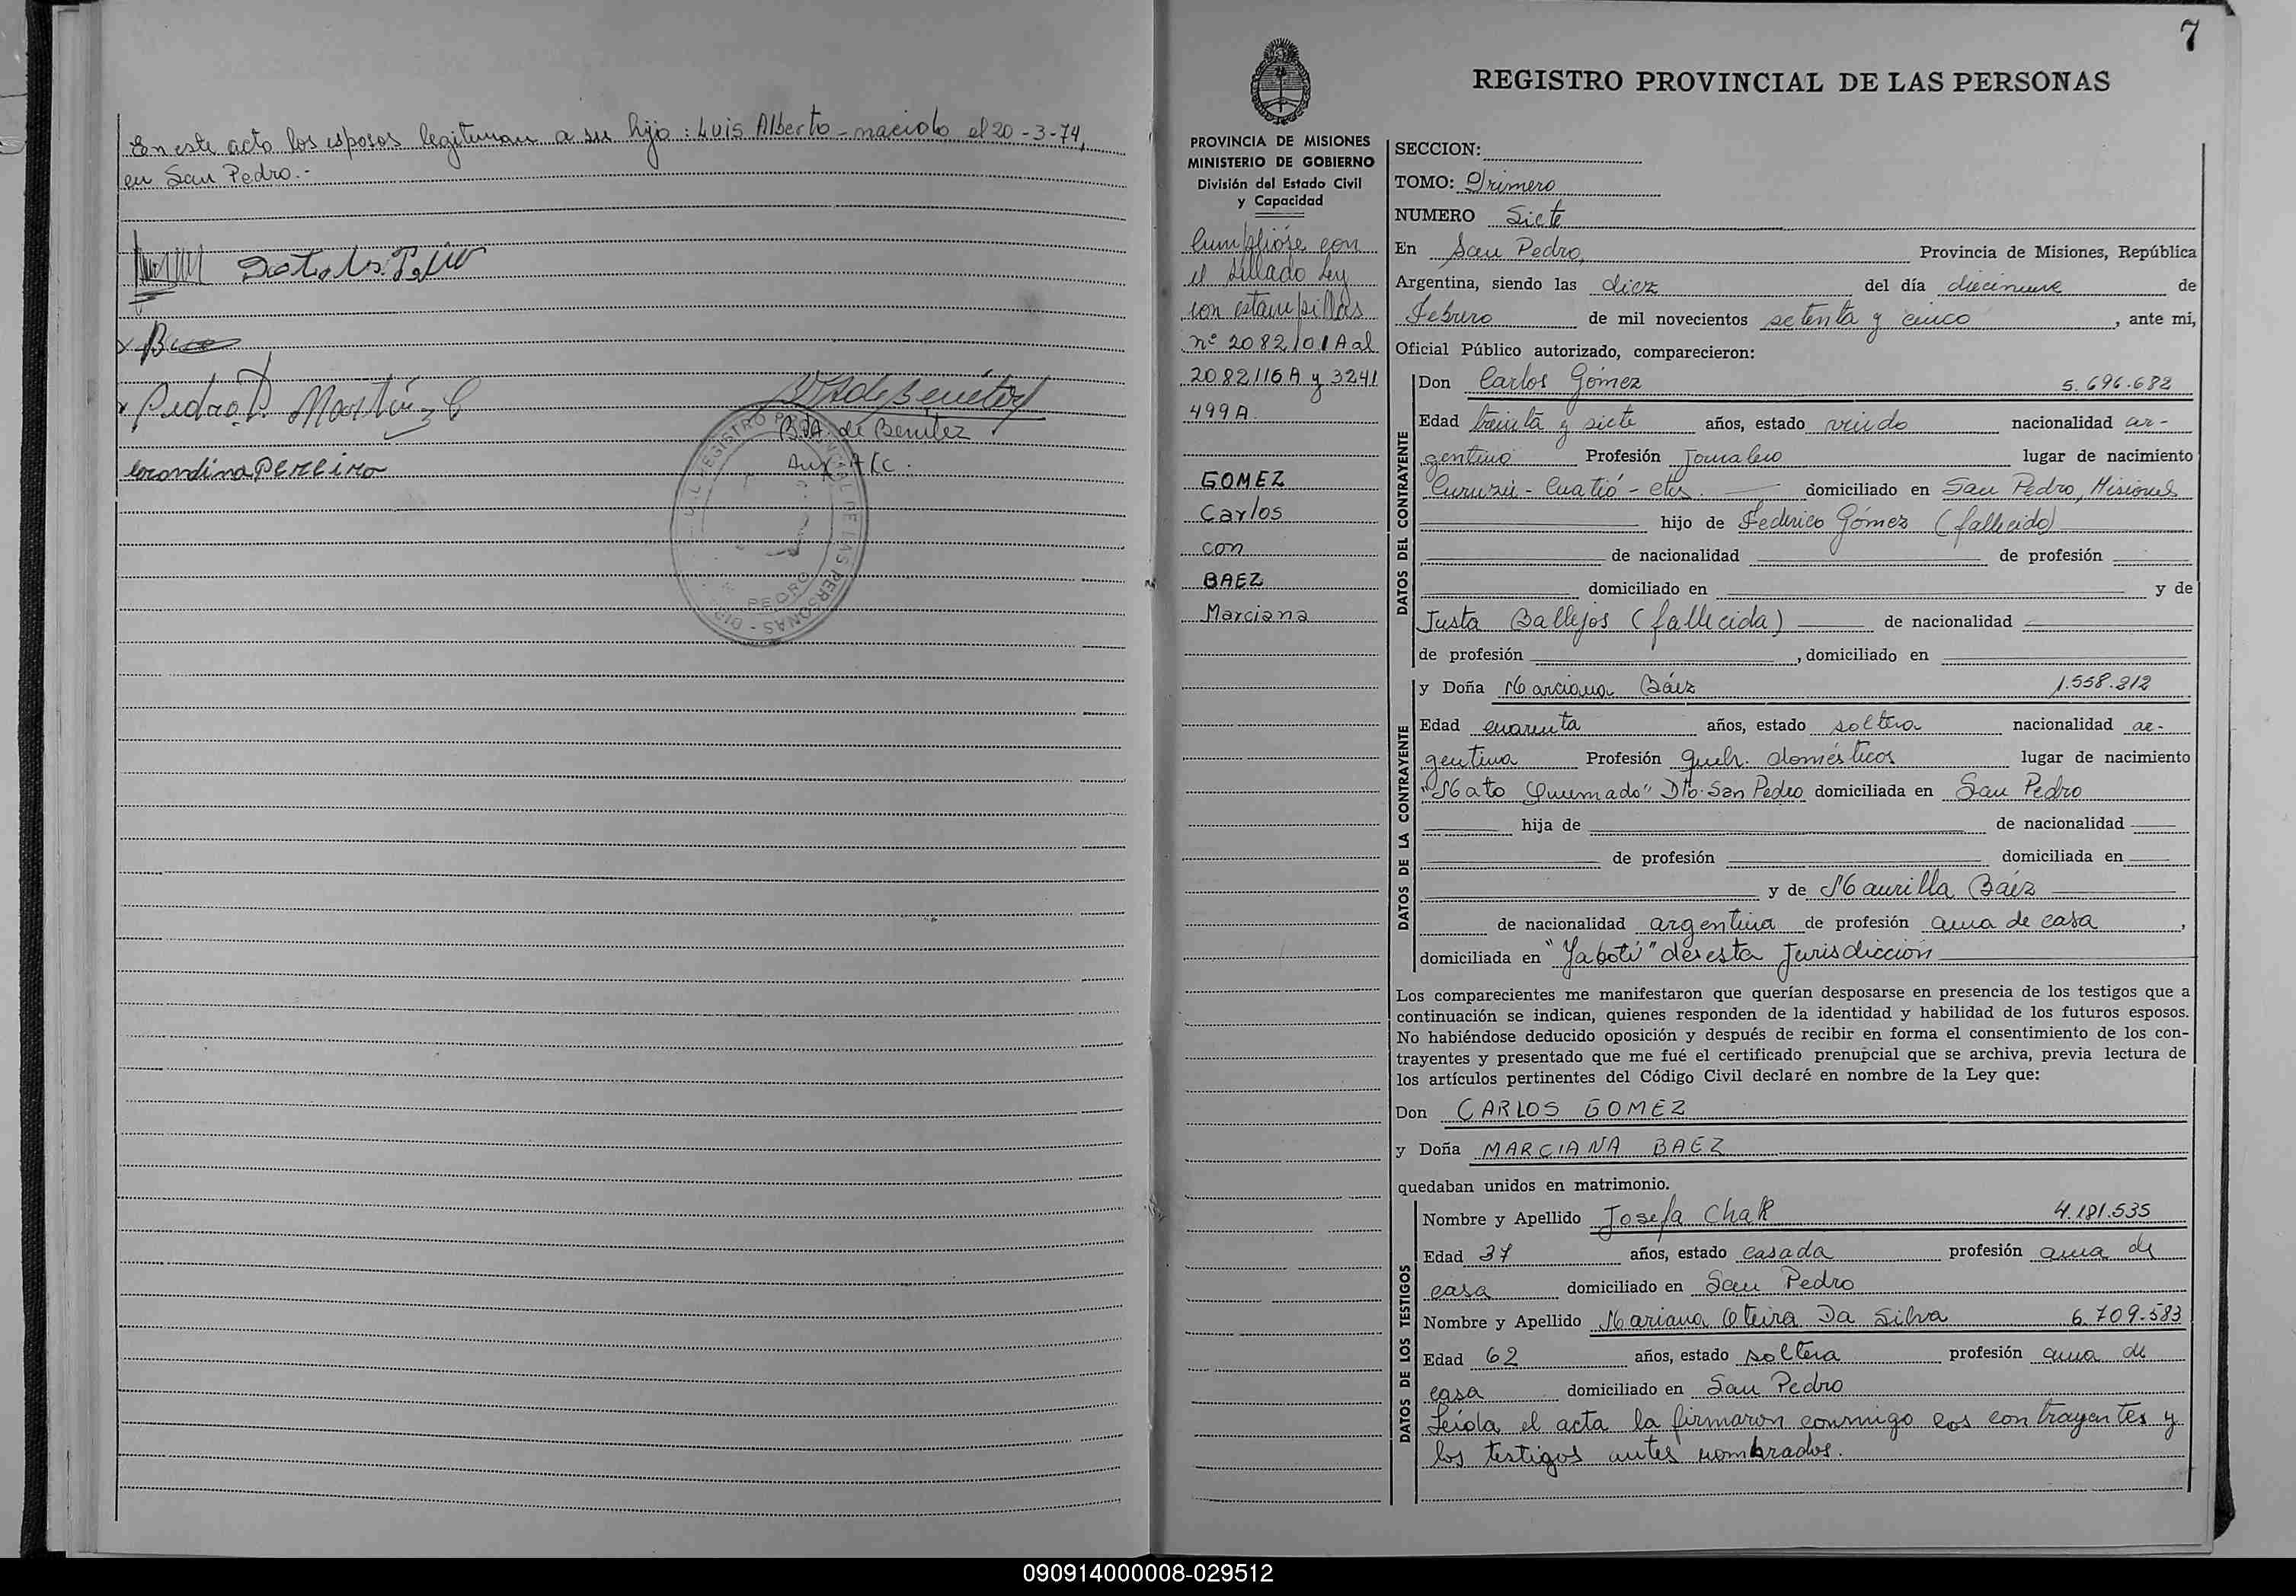 En este acto los esposos legitiman a su hijo: Luis Alberto - nacido el 20-3-74,
en San Pedro.-
Pedro D. Martínez
B.DA. de Benitez
Aux. A/c.
REGISTRO PROVINCIAL DE LAS PERSONAS
PEDRO
7
REGISTRO PROVINCIAL DE LAS PERSONAS
PROVINCIA DE MISIONES
MINISTERIO DE GOBIERNO
División del Estado Civil
y Capacidad
Cumplióse con
el sellado Ley
con estampillas
nº 2082101A al
2082116A y 3241
499A
GOMEZ
Carlos
con
BAEZ
Marciana
SECCION:
TOMO: Primero
NUMERO Siete
En San Pedro, Provincia de Misiones, República
Argentina, siendo las diez del día diecinueve de
Febrero de mil novecientos setenta y cinco, ante mí,
Oficial Público autorizado, comparecieron:
DATOS DEL CONTRAYENTE
Don Carlos Gómez 5.696.682
Edad treinta y siete años, estado viudo nacionalidad ar-
gentino Profesión Jornalero lugar de nacimiento
Curuzú-Cuatiá-Ctes. domiciliado en San Pedro, Misiones
hijo de Federico Gómez (fallecido)
de nacionalidad de profesión
domiciliado en y de
Justa Ballejos (fallecida) de nacionalidad
de profesión , domiciliado en
DATOS DE LA CONTRAYENTE
y Doña Marciana Báez 1.558.212
Edad cuarenta años, estado soltera nacionalidad ar-
gentina Profesión queh. domésticos lugar de nacimiento
"Mato Quemado" Dto. San Pedro domiciliada en San Pedro
hija de de nacionalidad
de profesión domiciliada en
y de Maurilla Báez
de nacionalidad argentina de profesión ama de casa,
domiciliada en "Yabotí" de esta Jurisdicción
Los comparecientes me manifestaron que querían desposarse en presencia de los testigos que a
continuación se indican, quienes responden de la identidad y habilidad de los futuros esposos.
No habiéndose deducido oposición y después de recibir en forma el consentimiento de los con-
trayentes y presentado que me fué el certificado prenupcial que se archiva, previa lectura de
los artículos pertinentes del Código Civil declaré en nombre de la Ley que:
Don CARLOS GOMEZ
y Doña MARCIANA BAEZ
quedaban unidos en matrimonio.
DATOS DE LOS TESTIGOS
Nombre y Apellido Josefa Chak 4.181.535
Edad 37 años, estado casada profesión ama de
casa domiciliado en San Pedro
Nombre y Apellido Mariana Oteira Da Silva 6.709.583
Edad 62 años, estado soltera profesión ama de
casa domiciliado en San Pedro
Leída el acta la firmaron conmigo los contrayentes y
los testigos antes nombrados.
090914000008-029512